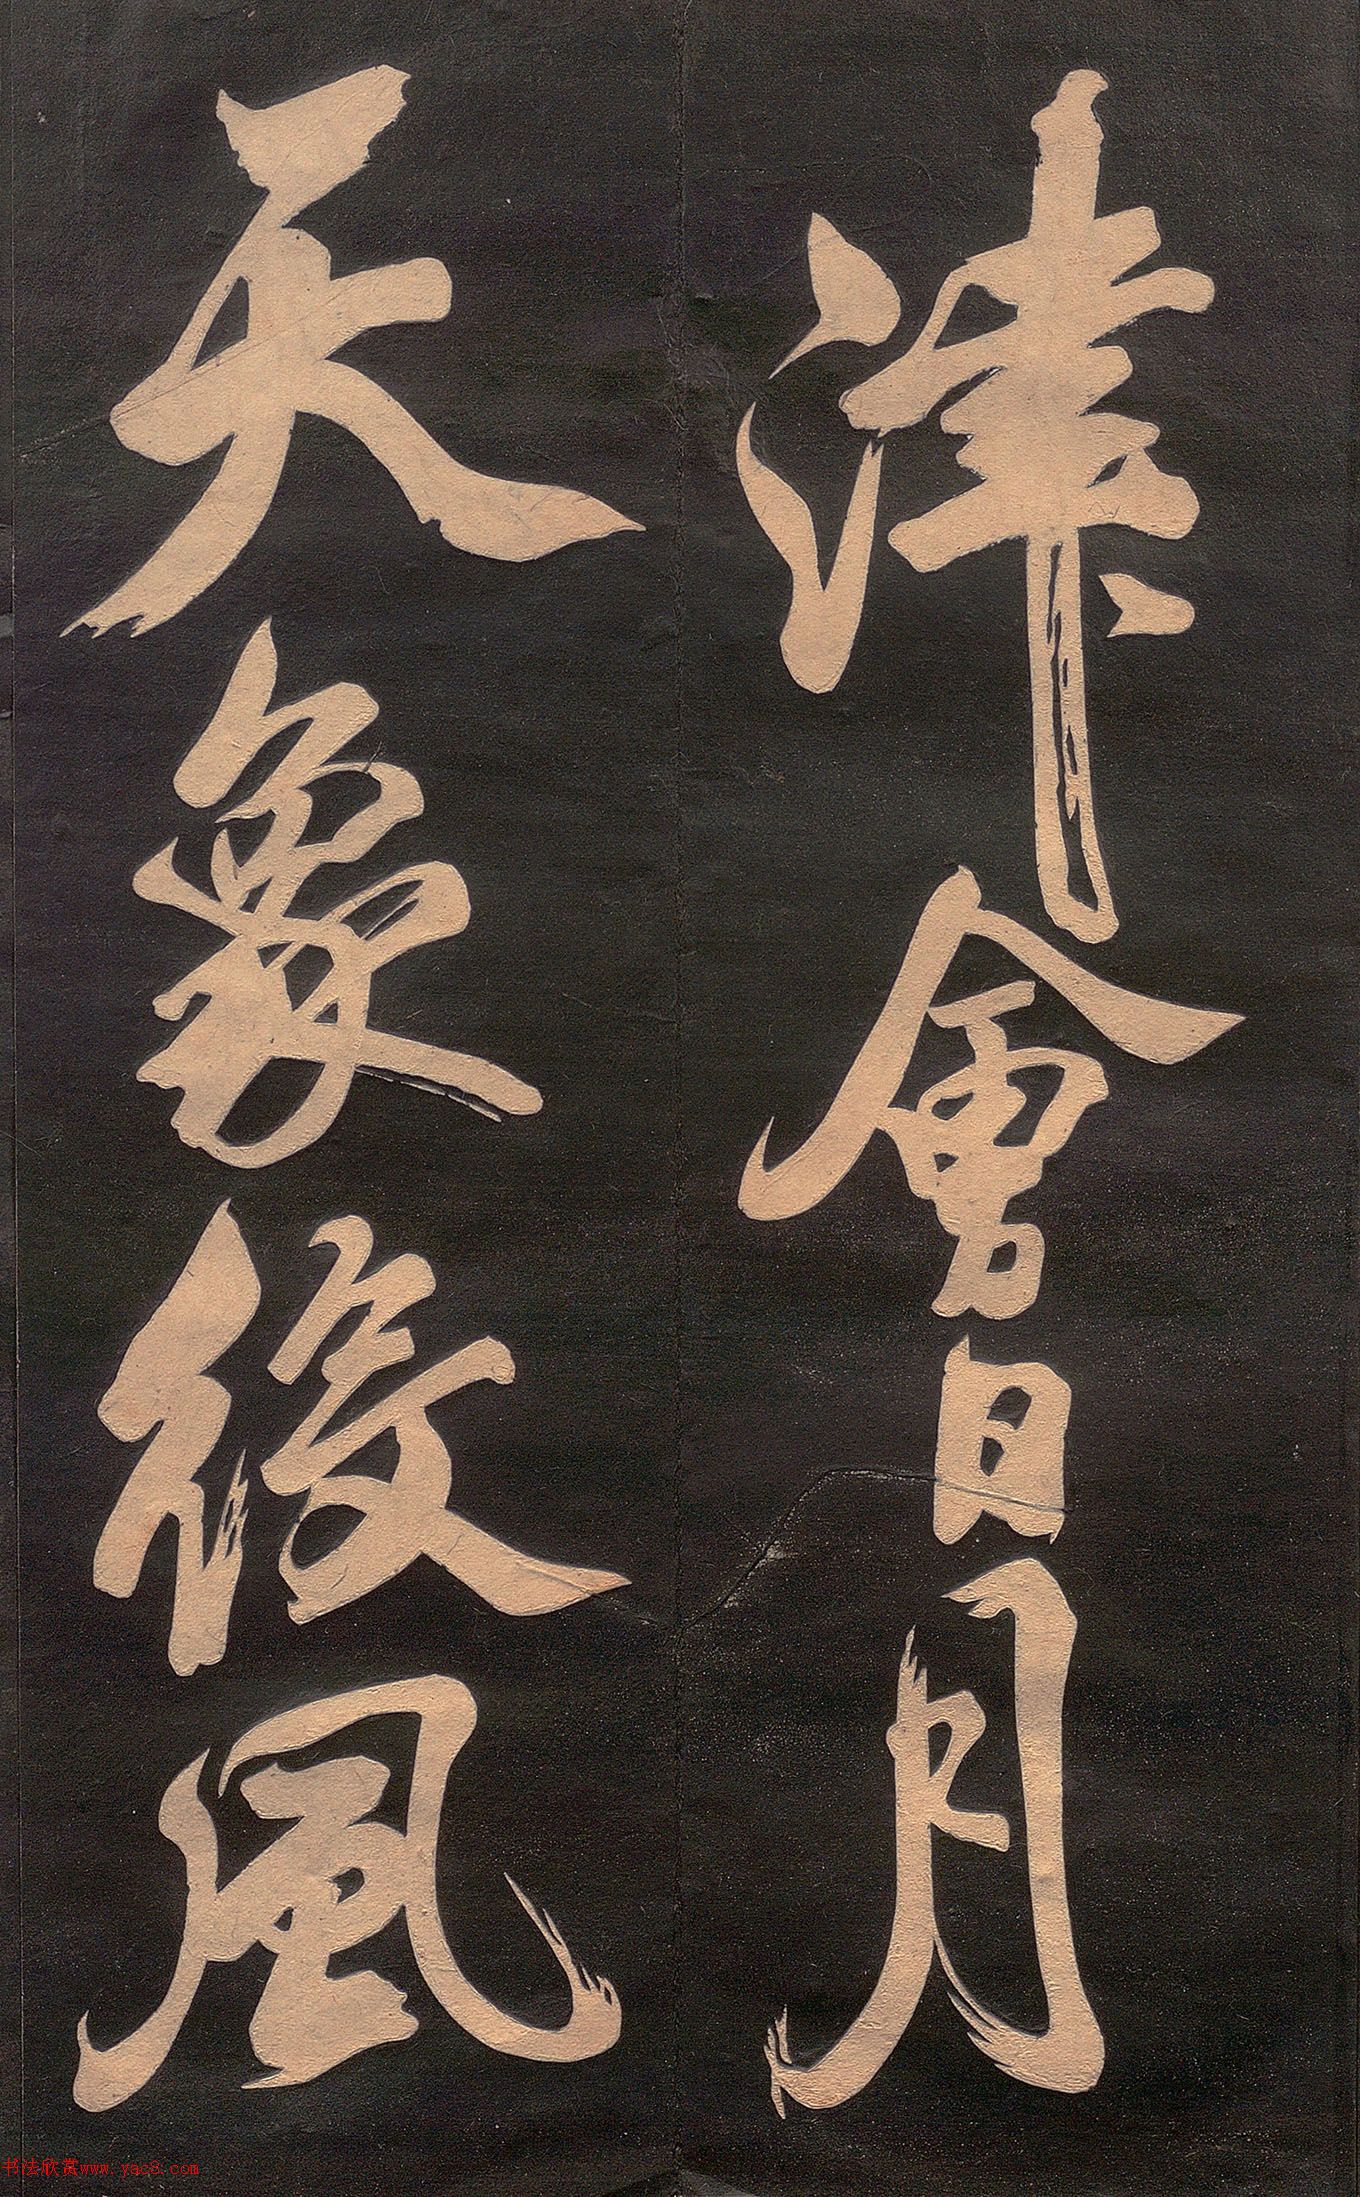 津會日月
天象後風
书法欣赏www.yac8.com